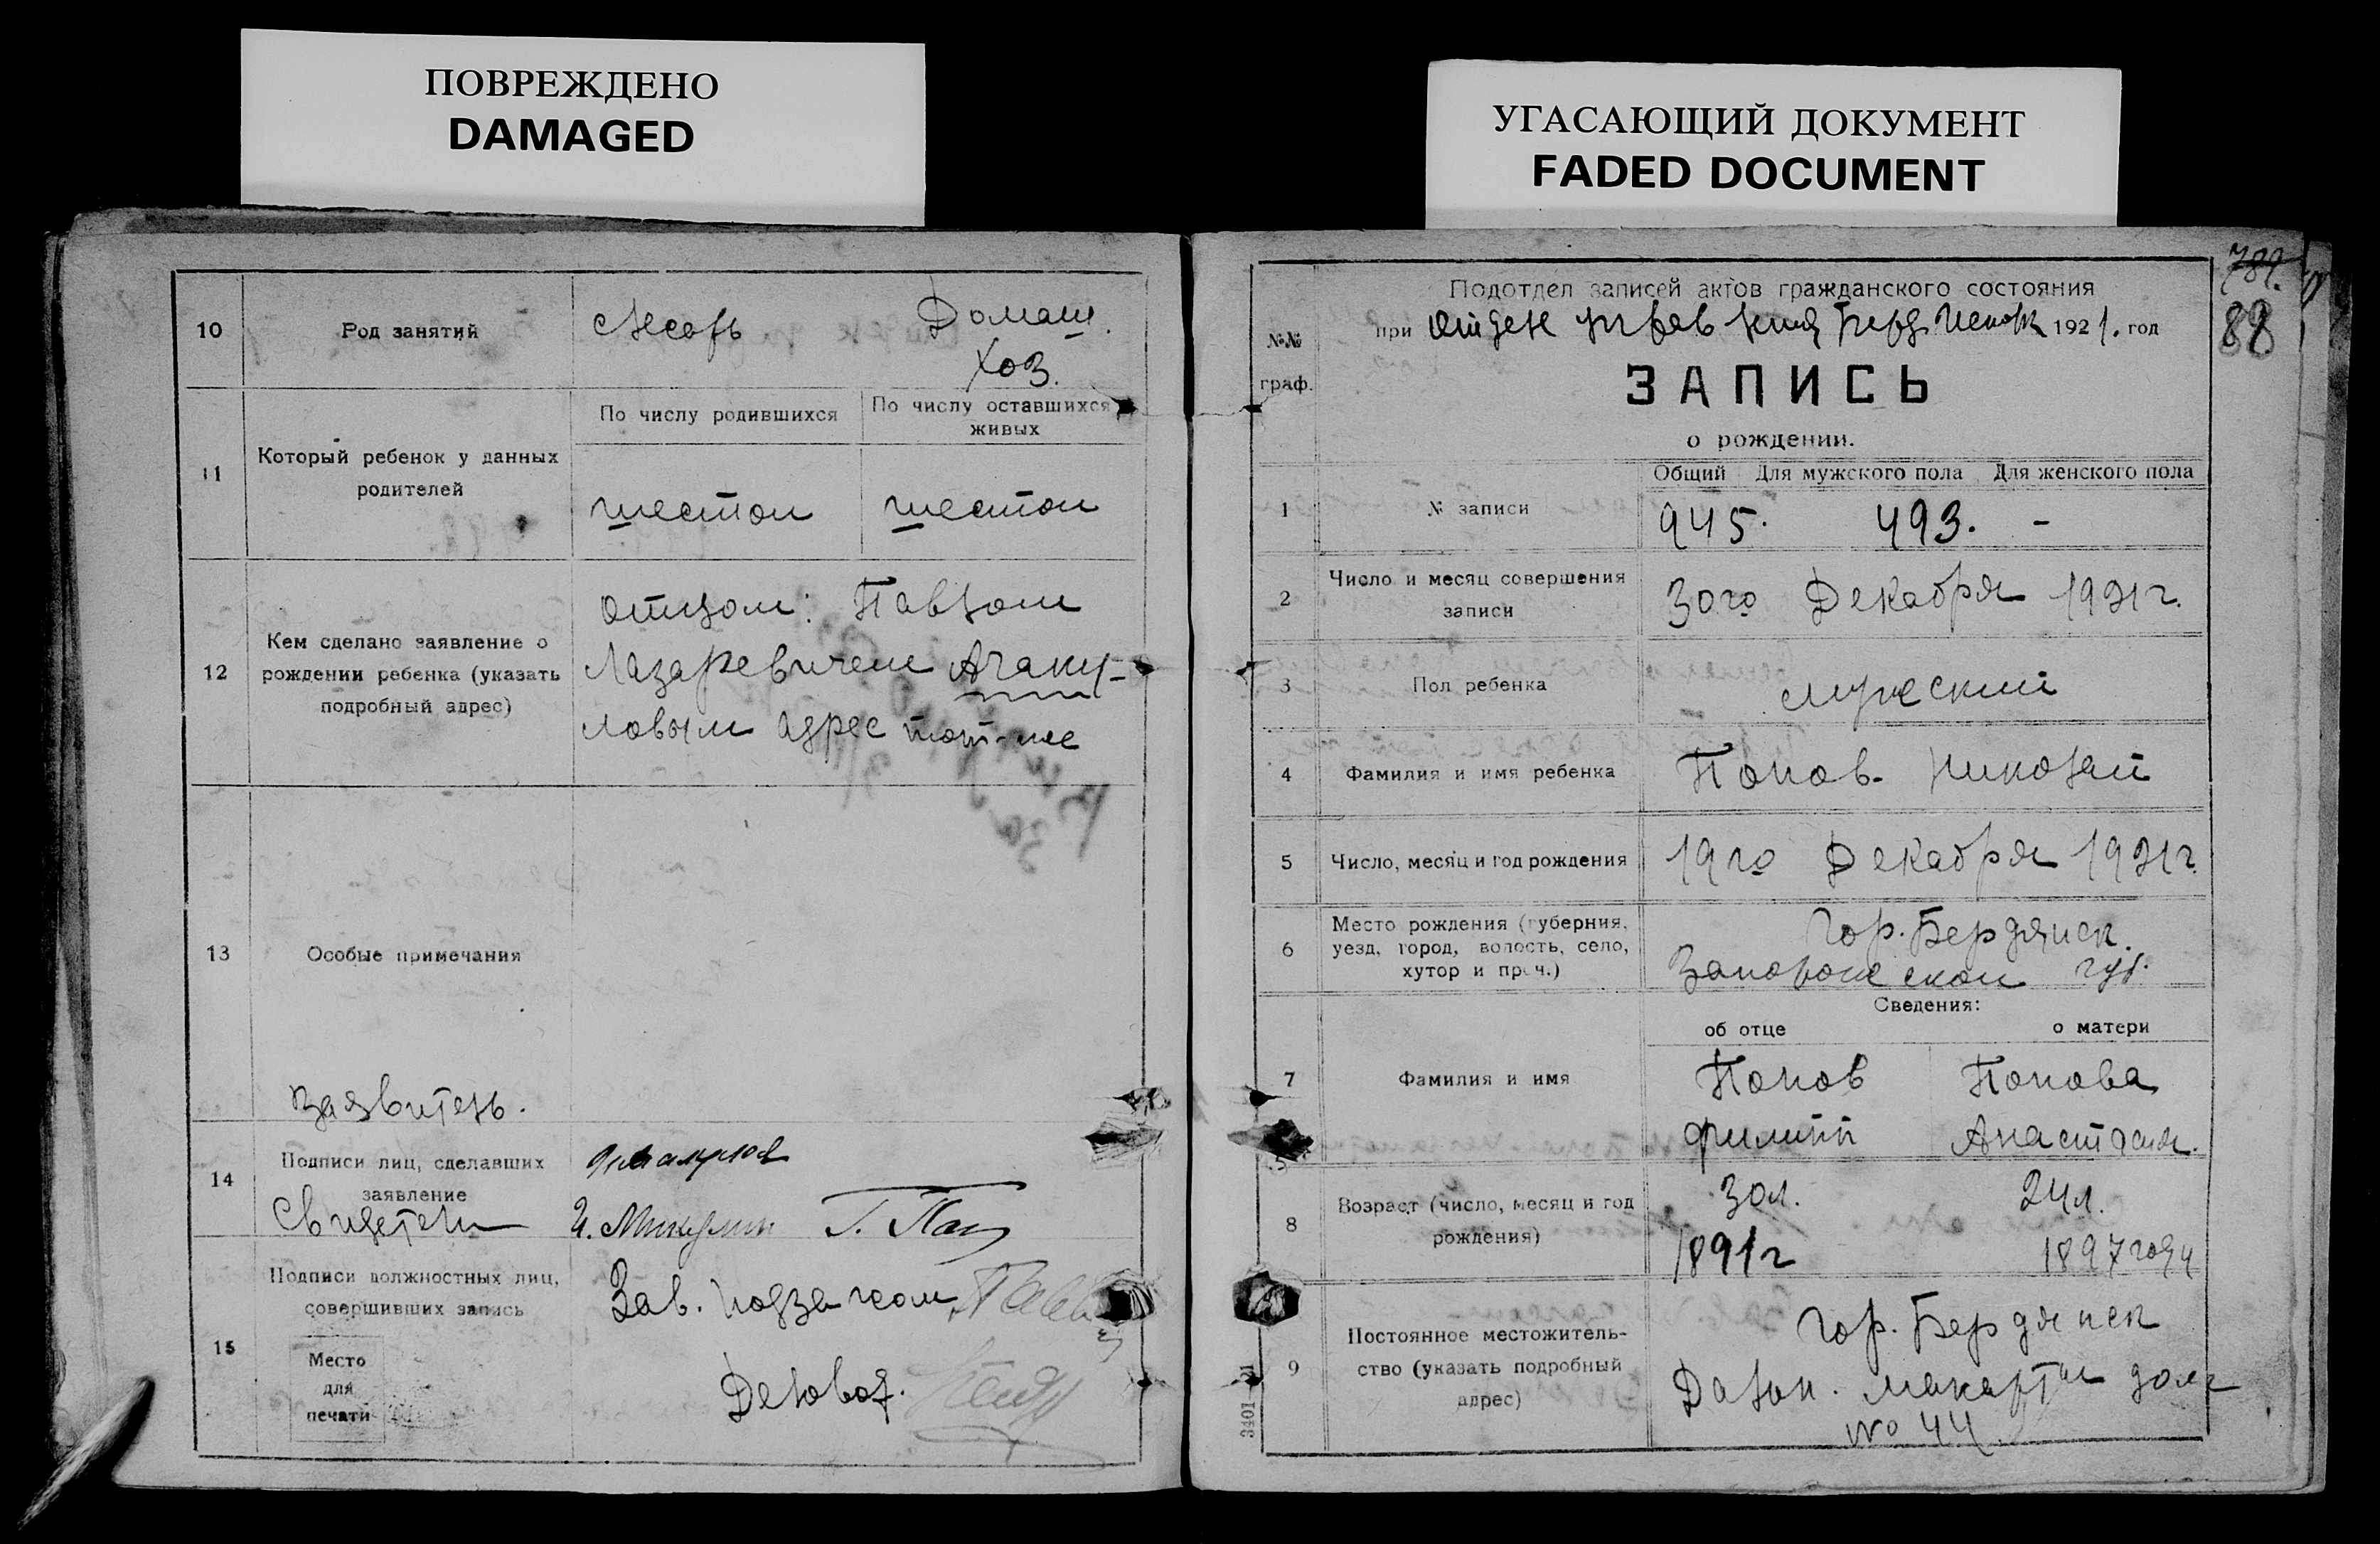 ПОВРЕЖДЕНО
DAMAGED
УГАСАЮЩИЙ ДОКУМЕНТ
FADED DOCUMENT
10 Род занятий Домаш.
Хоз.
11 Который ребенок у данных родителей
По числу родившихся По числу оставшихся живых
шестой шестой
12 Кем сделано заявление о рождении ребенка (указать подробный адрес)
отцом: Павлом
Лазаревичем Ачку-
ловым адрес тот-же
13 Особые примечания
Заявитель.
14 Подписи лиц, сделавших заявление
Свидетели И. Микулин Г.
15 Подписи должностных лиц, совершивших запись
Зав. подзагсом
Деловод.
Место
для
печати
789.
88
Подотдел записей актов гражданского состояния
№№ граф.
при Отделе управления Берд. Исполк 1921. год
ЗАПИСЬ
о рождении.
Общий Для мужского пола Для женского пола
1 № записи 945. 493. -
2 Число и месяц совершения записи 30го Декабря 1921г.
3 Пол ребенка мужеский
4 Фамилия и имя ребенка Попов Николай
5 Число, месяц и год рождения 19го Декабря 1921г.
6 Место рождения (губерния, уезд, город, волость, село, хутор и проч.)
Гор. Бердянск.
Запорожской губ.
Сведения:
об отце о матери
7 Фамилия и имя Попов Попова
Филипп Анастасия.
8 Возраст (число, месяц и год рождения) 30л. 24л.
1891г 1897 году
9 Постоянное местожительство (указать подробный адрес)
Гор. Бердянск
дом
№ 44
3401—21